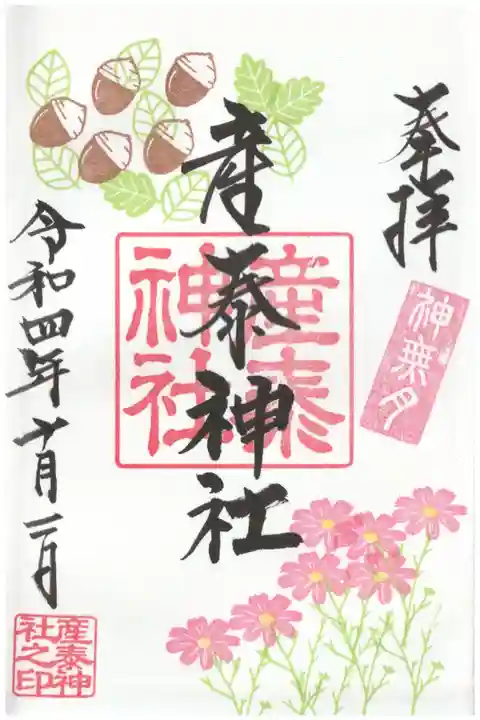 奉拝
神無月
産泰神社
産泰
神社
令和四年十月二日
産泰神
社之印